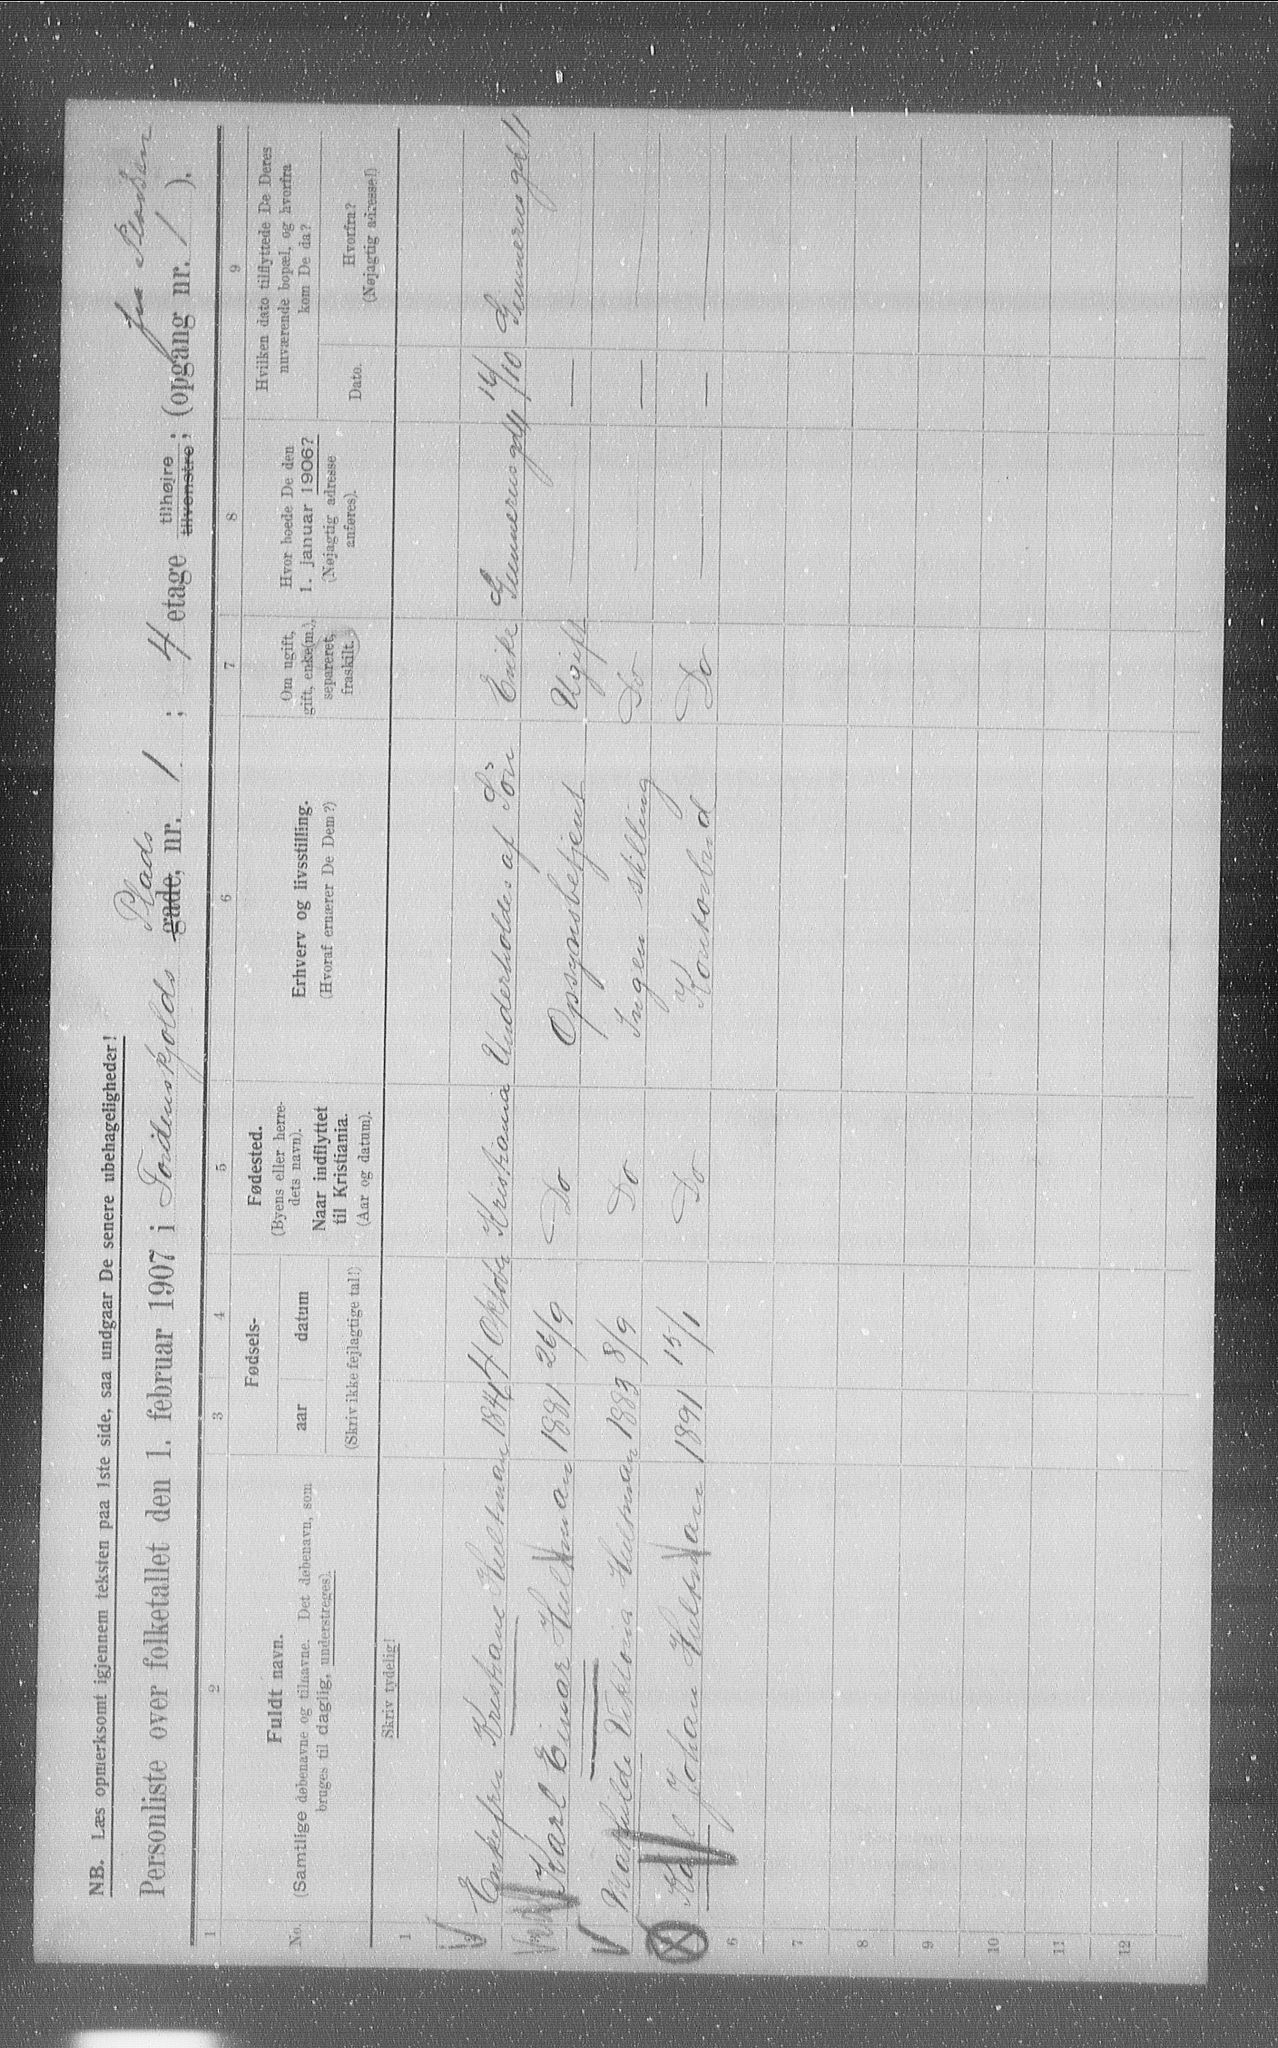 NB. Læs opmerksomt igjennem teksten paa 1ste side, saa undgaar De senere ubehageligheder!
fra Pladsen
Personliste over folketallet den 1. februar 1907 i Tordenskjolds gade, Plads nr. 1 ; 4 etage tilhøire tilvenstre; (opgang nr. 1 ).
1 2 3 4 5 6 7 8 9
No.
Fuldt navn.
(Samtlige døbenavne og tilnavne. Det døbenavn, som
bruges til daglig, understreges).
Fødsels-
aar datum
(Skriv ikke fejlagtige tal!)
Fødested.
(Byens eller herre-
dets navn).
Naar indflyttet
til Kristiania.
(Aar og datum).
Erhverv og livsstilling.
(Hvoraf ernærer De Dem?)
Om ugift,
gift, enke(m.),
separeret,
fraskilt.
Hvor boede De den
1. januar 1906?
(Nøjagtig adresse
anføres).
Hvilken dato tilflyttede De Deres
nuværende bopæl, og hvorfra
kom De da?
Dato.
Hvorfra?
(Nøjagtig adresse!)
Skriv tydelig!
1
Enkefru Kristiane Hultman 4 Oktober Kristiania Underholdes af Søn Enke Gunnerusgd 11 /10 Gunnerusgd 11
Karl Einar Hultman 1881 26/9 Do Opsynsbetjent Ugift — — —
Mathilde Viktoria Hultman 1883 8/9 Do Ingen stilling Do — — —
Karl Johan Hultman 1891 15/1 Do Kontorbud Do — — —
6
7
8
9
10
11
12